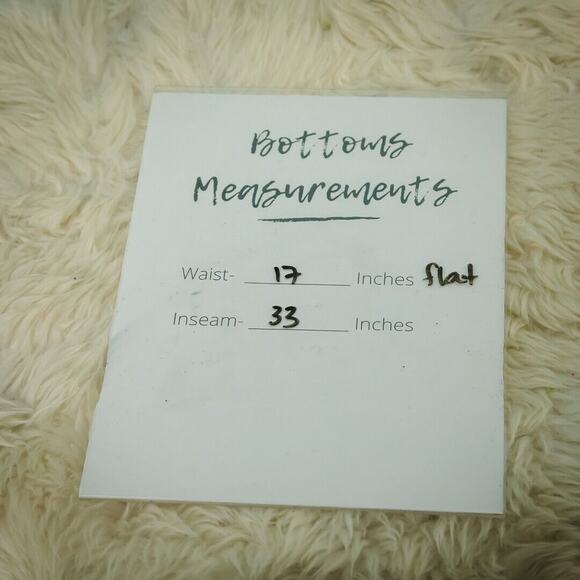 Bottoms
Measurements
Waist- 17 Inches flat
Inseam- 33 Inches